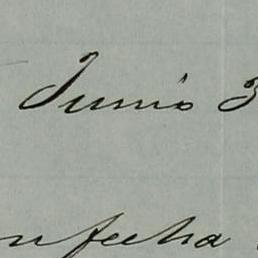 Junio 3
n fecha